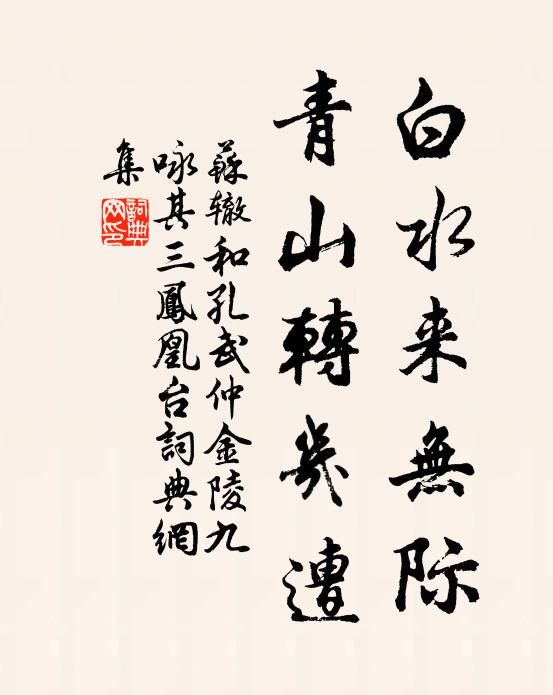 白水来無际
青山轉幾遭
蘇辙和孔武仲金陵九
咏其三鳳凰台詞典網
集
詞典
网印